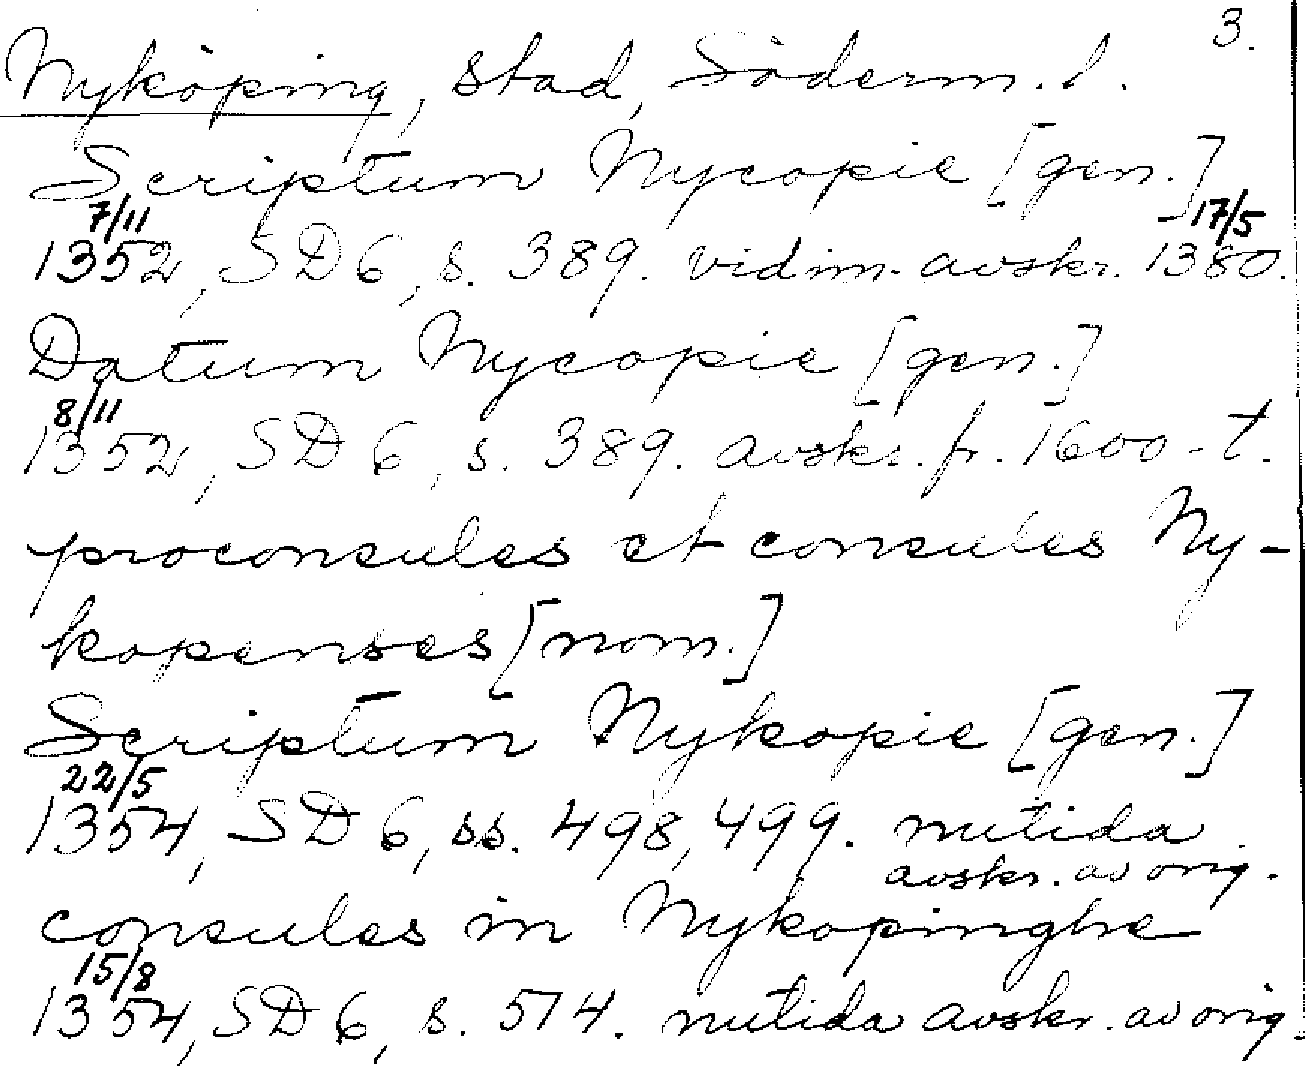 3.
Nyköping, stad, Söderm. l.
Scriptum Nycopie [gen.]
7/11 17/5
1352, SD 6, s. 389. vidim. avskr. 1380.
Datum Nycopie [gen.]
8/11
1352, SD 6, s. 389. avskr. fr. 1600-t.
proconsules et consules Ny-
kopenses [nom.]
Scriptum Nykopie [gen.]
22/5
1354, SD 6, ss. 498, 499. nutida
avskr. av orig.
consules in Nykopinghe
15/8
1354, SD 6, s. 514. nutida avskr. av orig